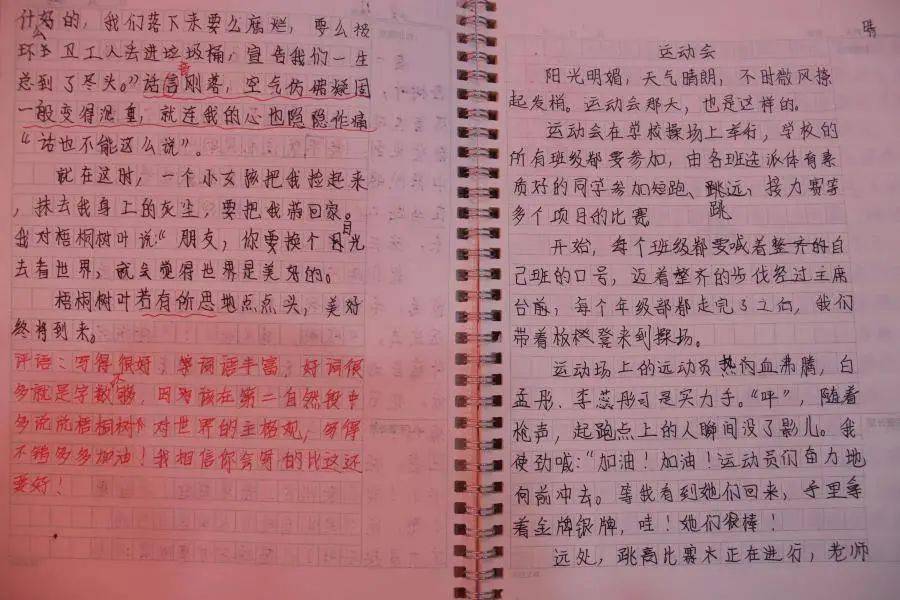 什么好的，我们落下来要么腐烂，要么被
环卫工人丢进垃圾桶，宣告我们一生
总到了尽头。”话音刚落，空气仿佛凝固
一般变得沉重，就连我的心也隐隐作痛
“话也不能这么说”。
就在这时，一个小女孩把我捡起来
，抹去我身上的灰尘，要把我带回家。
我对梧桐树叶说：“朋友，你要换个目光
去看世界，就会觉得世界是美好的。
梧桐树叶若有所思地点点头，美好
终将到来。
评语：写得很好，等词语丰富，好词很
多就是字数不够，因为该在第二自然段中
多说说梧桐树叶对世界的主极观，写得
不错多多加油！我相信你会写的比这还
要好！
运动会
阳光明媚，天气晴朗，不时微风撩
起发梢。运动会那天，也是这样的。
运动会在学校操场上举行，学校的
所有班级都要参加，由各班选派体育素
质好的同学参加短跑、跳远、接力赛等
多个项目的比赛
跳
开始，每个班级都要喊着整齐的自
己班的口号，迈着整齐的步伐经过主席
台前，每个年级部都走完了之后，我们
带着板凳来到操场。
运动场上的运动员热血沸腾，白
孟彤、李蕊彤可是实力手。“呯”，随着
枪声，起跑点上的人瞬间没了影儿。我
使劲喊：“加油！加油！运动员们奋力地
向前冲去。等我看到她们回来，手里拿
着金牌银牌，哇！她们很棒！
远处，跳高比赛木正在进行，老师